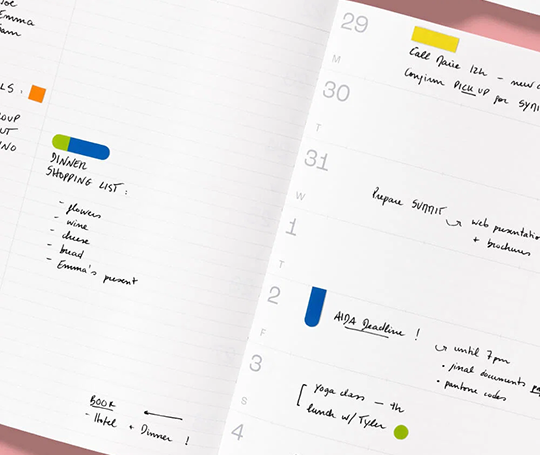 Emma
LS :
OUP
UT
NO
DINNER
SHOPPING LIST :
- flowers
- wine
- cheese
- bread
- Emma's present
BOOK
- Hotel + Dinner !
29
Call Marie 12h – new
Confirm PICK UP for
M
30
T
31
Prepare SUMMIT
web presentatio
+ brochures
W
1
T
2
AIDA Deadline !
until 7pm
• final documents
• pantone codes
F
3
yoga class –
lunch w/ Tyler
S
4